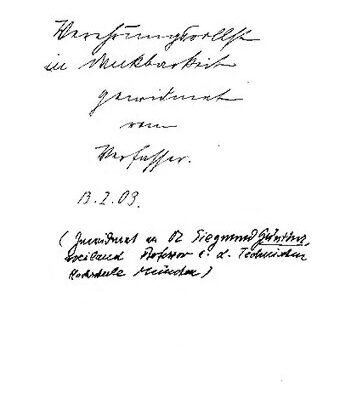 Verehrungsvollst
in Dankbarkeit
gewidmet
vom
Verfasser.
13.I.09.
(Gewidmet an Dr Siegmund Günther,
weiland Professor a. d. Technischen
Hochschule München)